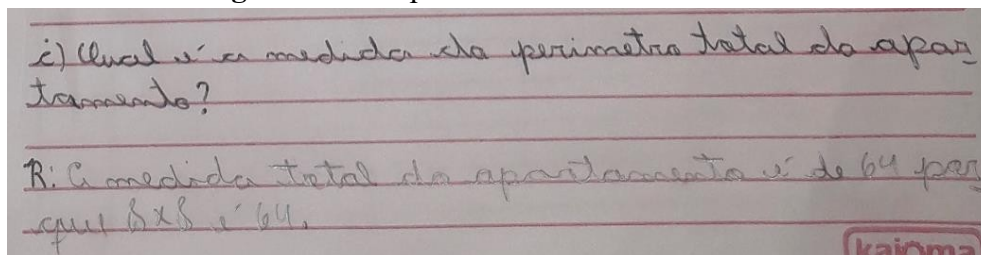 i) Qual é a medida do perimetro total do apar-
tamento?
R: A medida total do apartamento é de 64 por
que 8x8 é 64.
kajoma